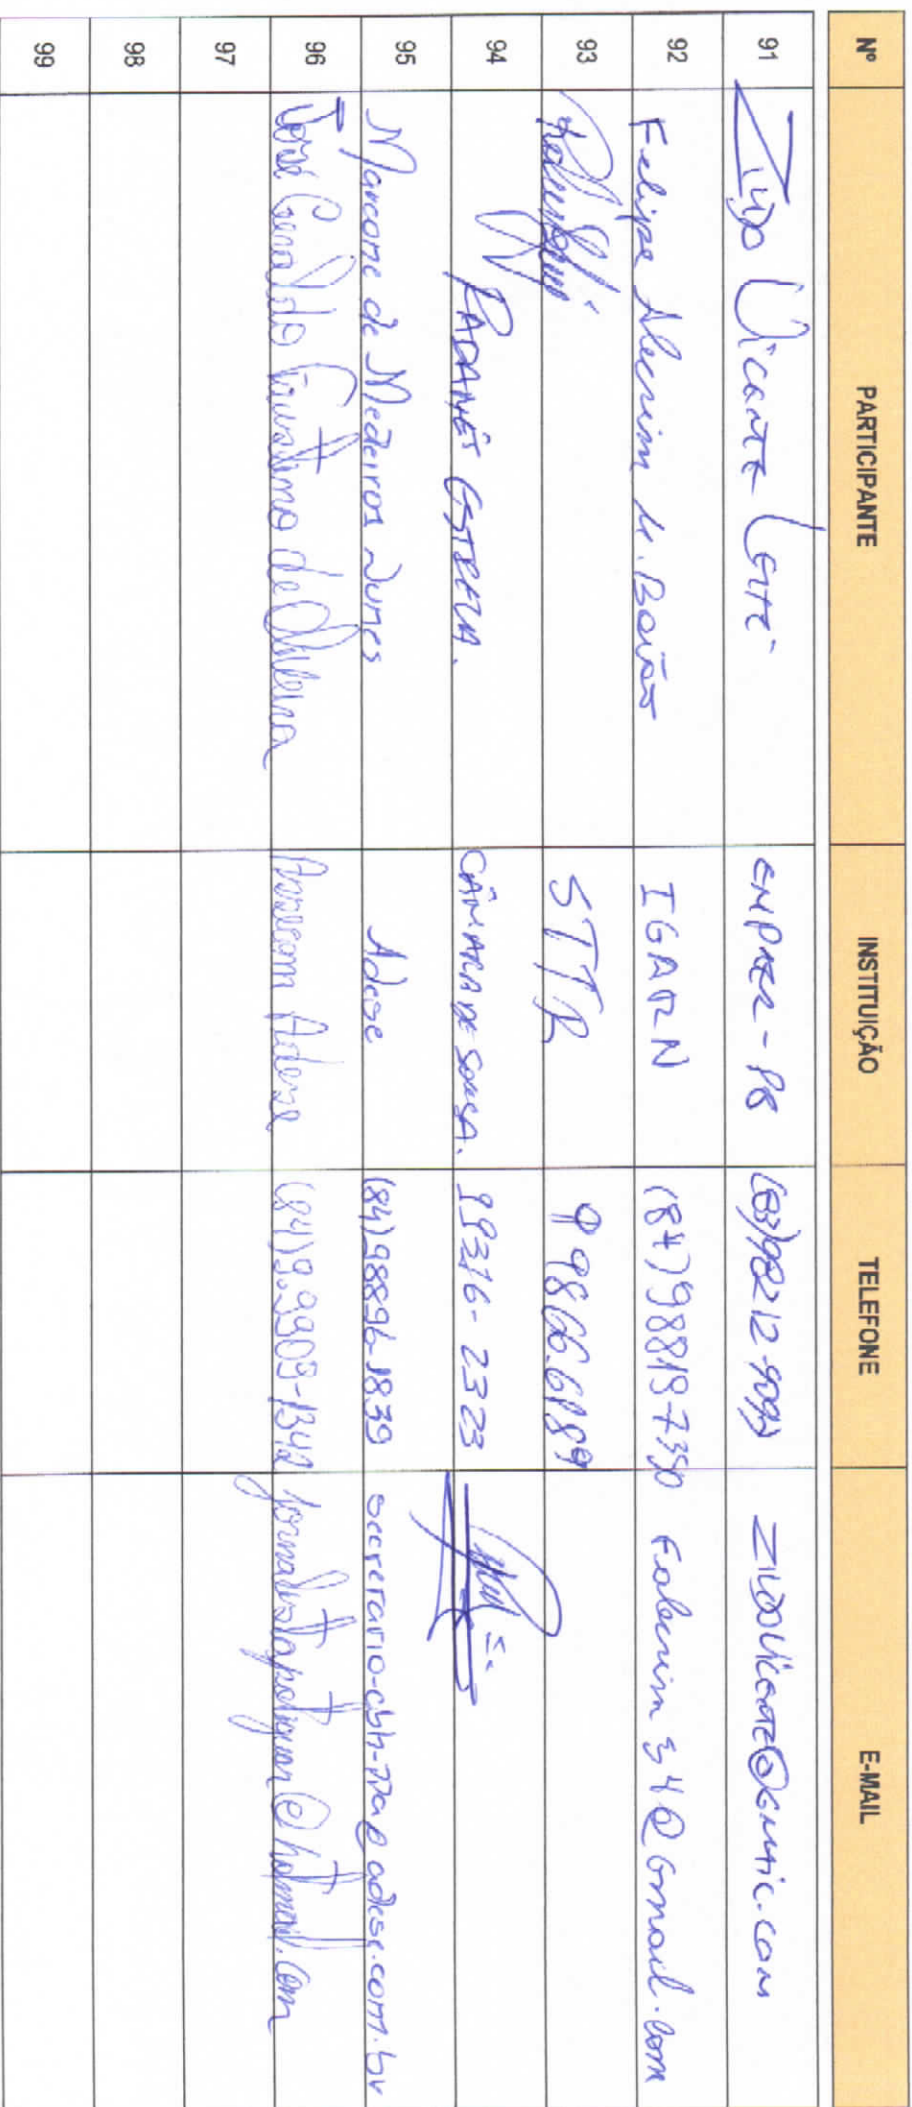 Nº PARTICIPANTE INSTITUIÇÃO TELEFONE E-MAIL
91 Zildo Vicente Leite EMPAER-PB (83)98212-9093 zildovicente@gmail.com
92 Felipe Alecrim IGARN (84)98819-7350 Falecrim34@gmail.com
93 STTR 99866.6189
94 RADAMÉS ESTRELA. CÂMARA DE SOUSA. 99376-2323
95 Marcone de Medeiros Nunes Adese (84)98896-1839 secretario-cbh-ppa@adese.com.br
96 José Geraldo Faustino de Oliveira Assecom Adese (84)9.9909-1342 jornalistapotiguar@hotmail.com
97
98
99